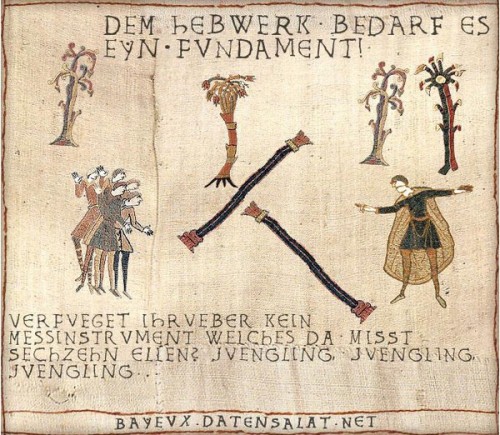 DEM HEBWERK · BEDARF ES
EYN · FVNDAMENT!
VERFVEGET IHRVEBER KEIN
MESSINSTRVMENT WELCHES DA · MISST
SECHZEHN ELLEN? JVENGLING, JVENGLING,
JVENGLING...
BAYEVX.DATENSALAT.NET